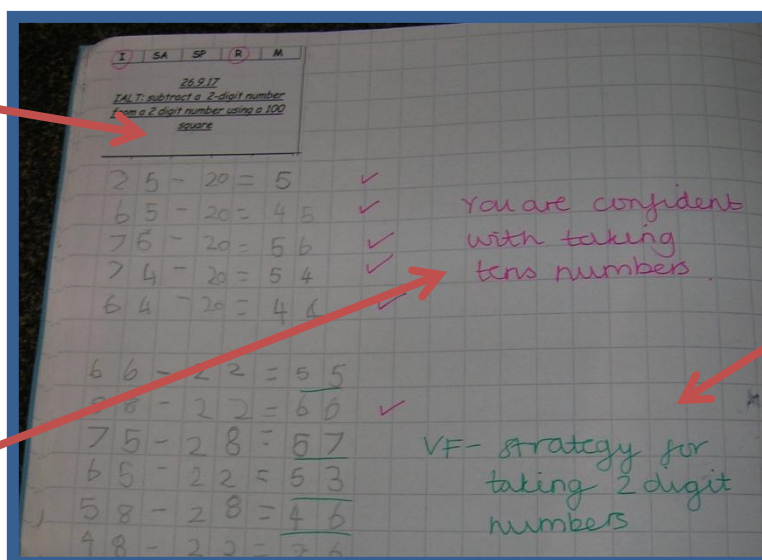 I SA SP R M
26.9.17
IALT: subtract a 2-digit number
from a 2 digit number using a 100
square
25 - 20 = 5
65 - 20 = 45
76 - 20 = 56
74 - 20 = 54
64 - 20 = 44
You are confident
with taking
tens numbers.
66 - 22 = 55
8 - 22 = 66
75 - 28 = 57
65 - 22 = 53
58 - 28 = 46
48 - 22 =
VF - strategy for
taking 2 digit
numbers